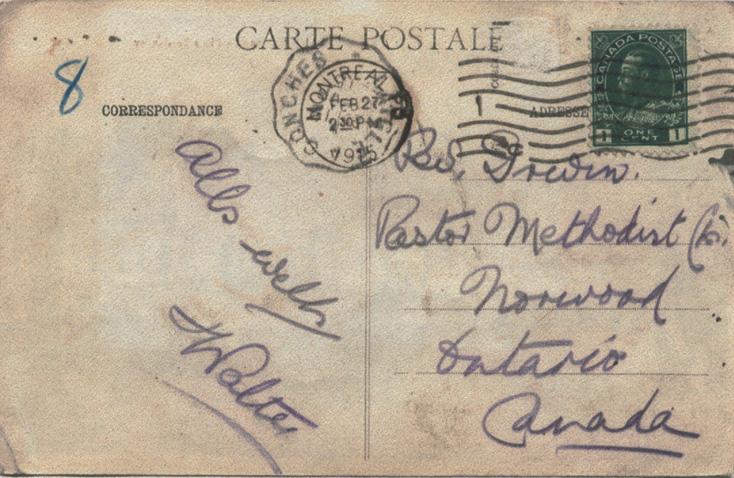 CARTE POSTALE
8
CORRESPONDANCE
ADRESSE
CONCHES
MONTREAL
FEB 27
2 30 PM
1915
CANADA POSTAGE
1 ONE CENT 1
Alls well
Walter
Pastor Methodist Ch.
Norwood
Ontario
Canada